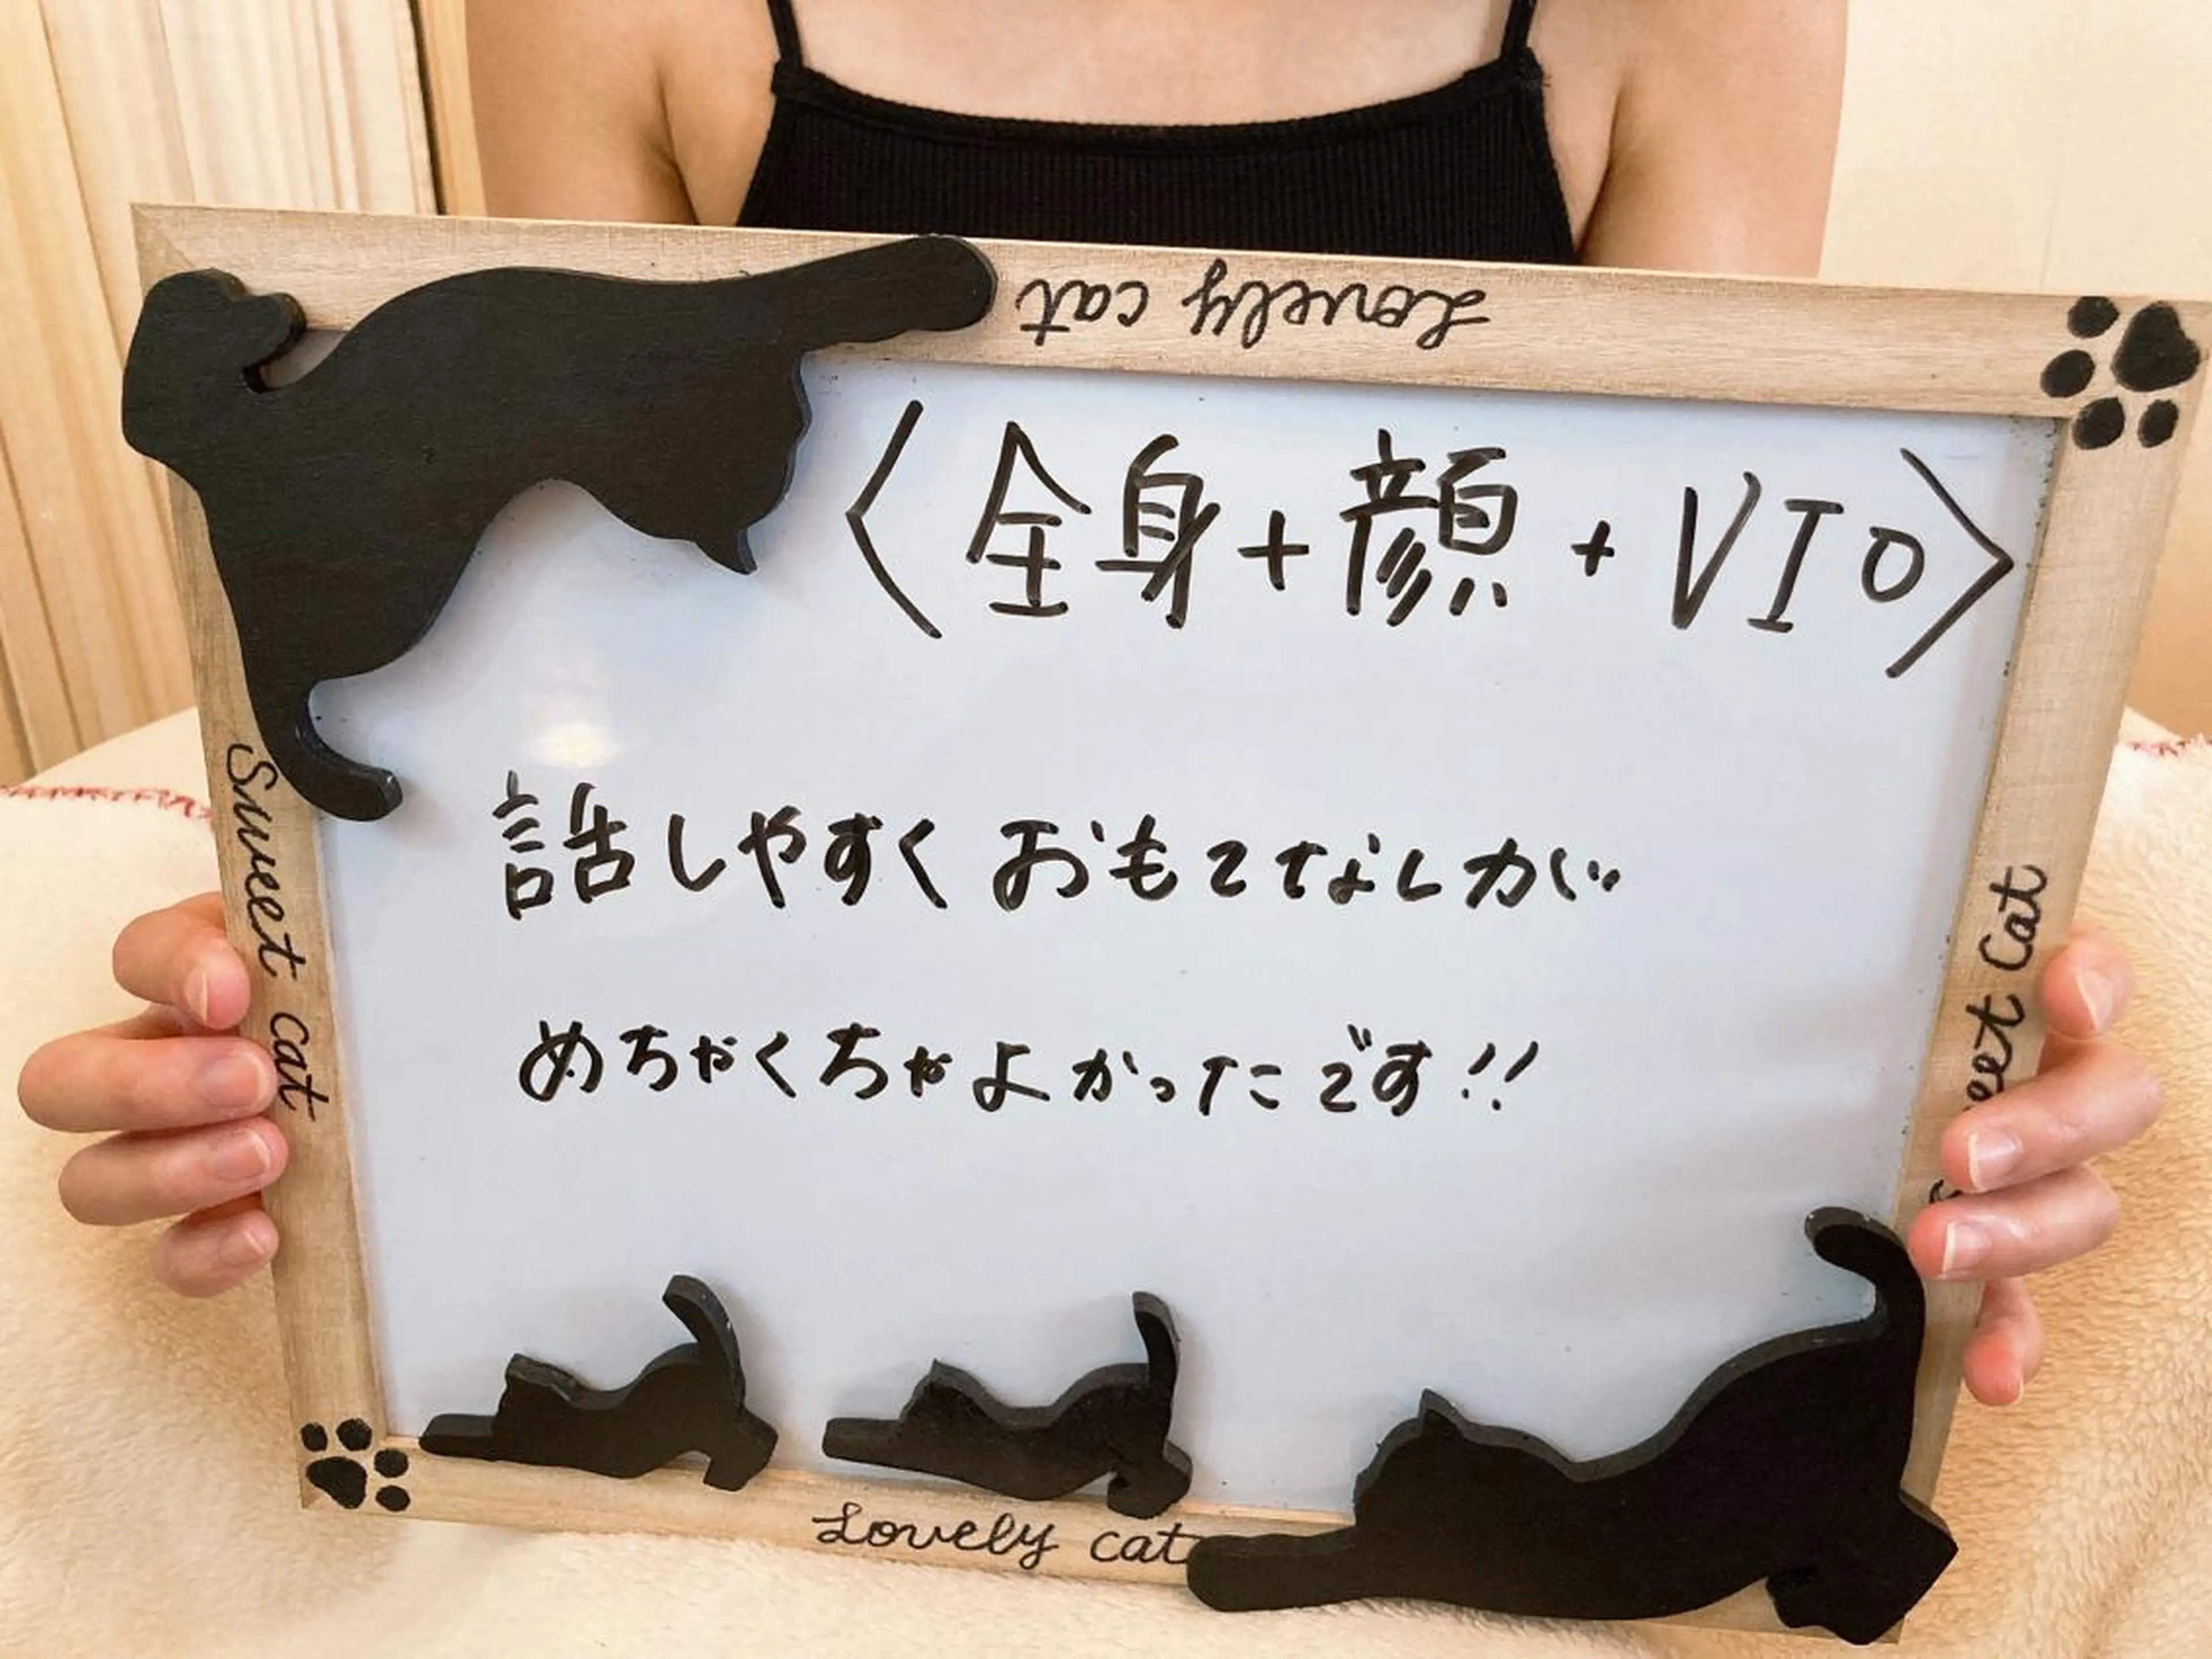 Lovely cat
〈全身+顔+VIO〉
話しやすくおもてなしが
めちゃくちゃよかったです!!
Sweet cat
eet Cat
Lovely cat